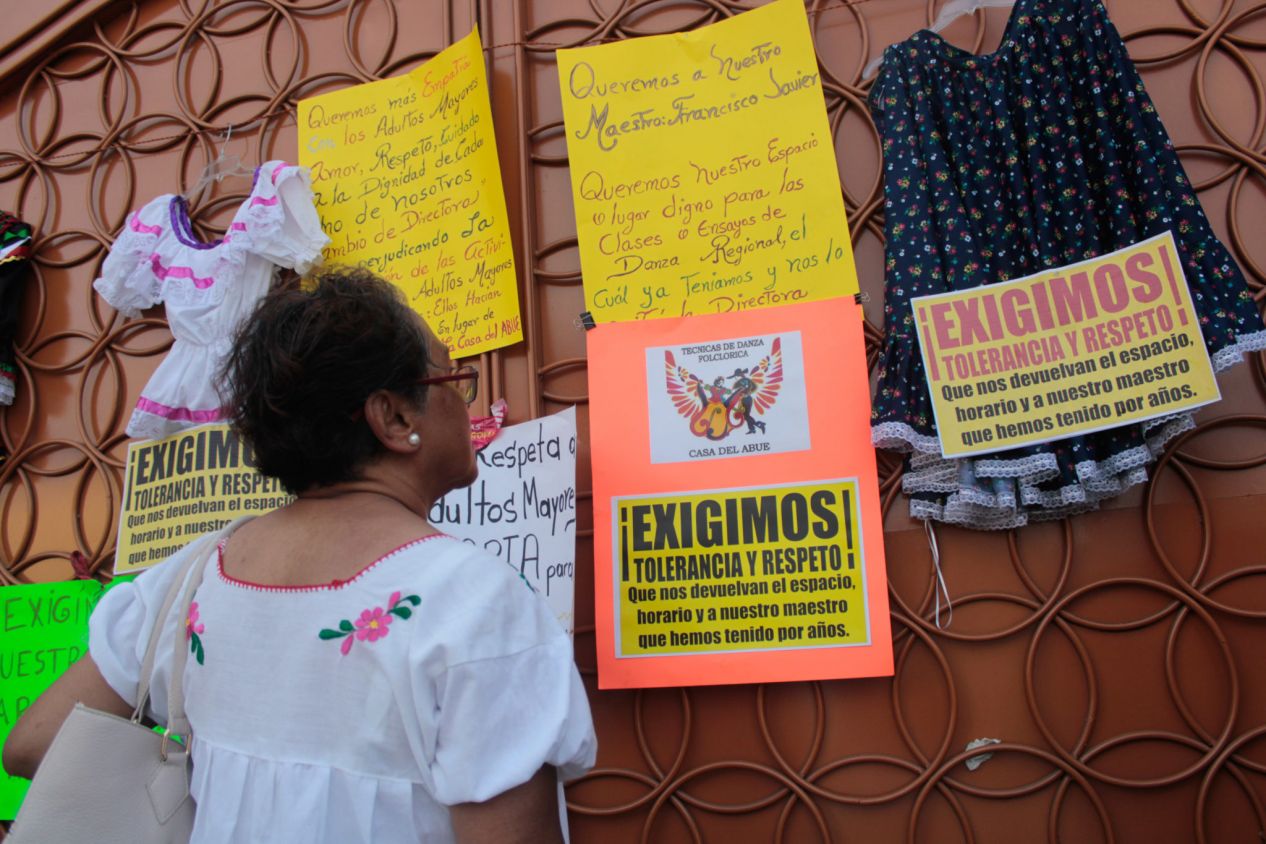 Queremos más Empatía
Con los Adultos Mayores
Amor, Respeto, Cuidado
a la Dignidad de Cada
de nosotros
de Directora
perjudicando La
de las Activi-
Adultos Mayores
Ellos Hacían
En lugar de
Casa del ABUE
Queremos a Nuestro
Maestro: Francisco Javier
Queremos Nuestro Espacio
o lugar digno para las
Clases o Ensayos de
Danza Regional, el
Cuál ya Teníamos y nos lo
la Directora
TECNICAS DE DANZA
FOLCLORICA
CASA DEL ABUE
¡EXIGIMOS!
TOLERANCIA Y RESPETO
Que nos devuelvan el espacio,
horario y a nuestro maestro
que hemos tenido por años.
¡EXIGIMOS!
TOLERANCIA Y RESPETO
Que nos devuelvan el espacio,
horario y a nuestro maestro
que hemos tenido por años.
¡EXIGIMOS
TOLERANCIA Y RESPETO
Que nos devuelvan el espacio
horario y a nuestro
que hemos
Respeta a
Adultos Mayore
para
EXIGIM